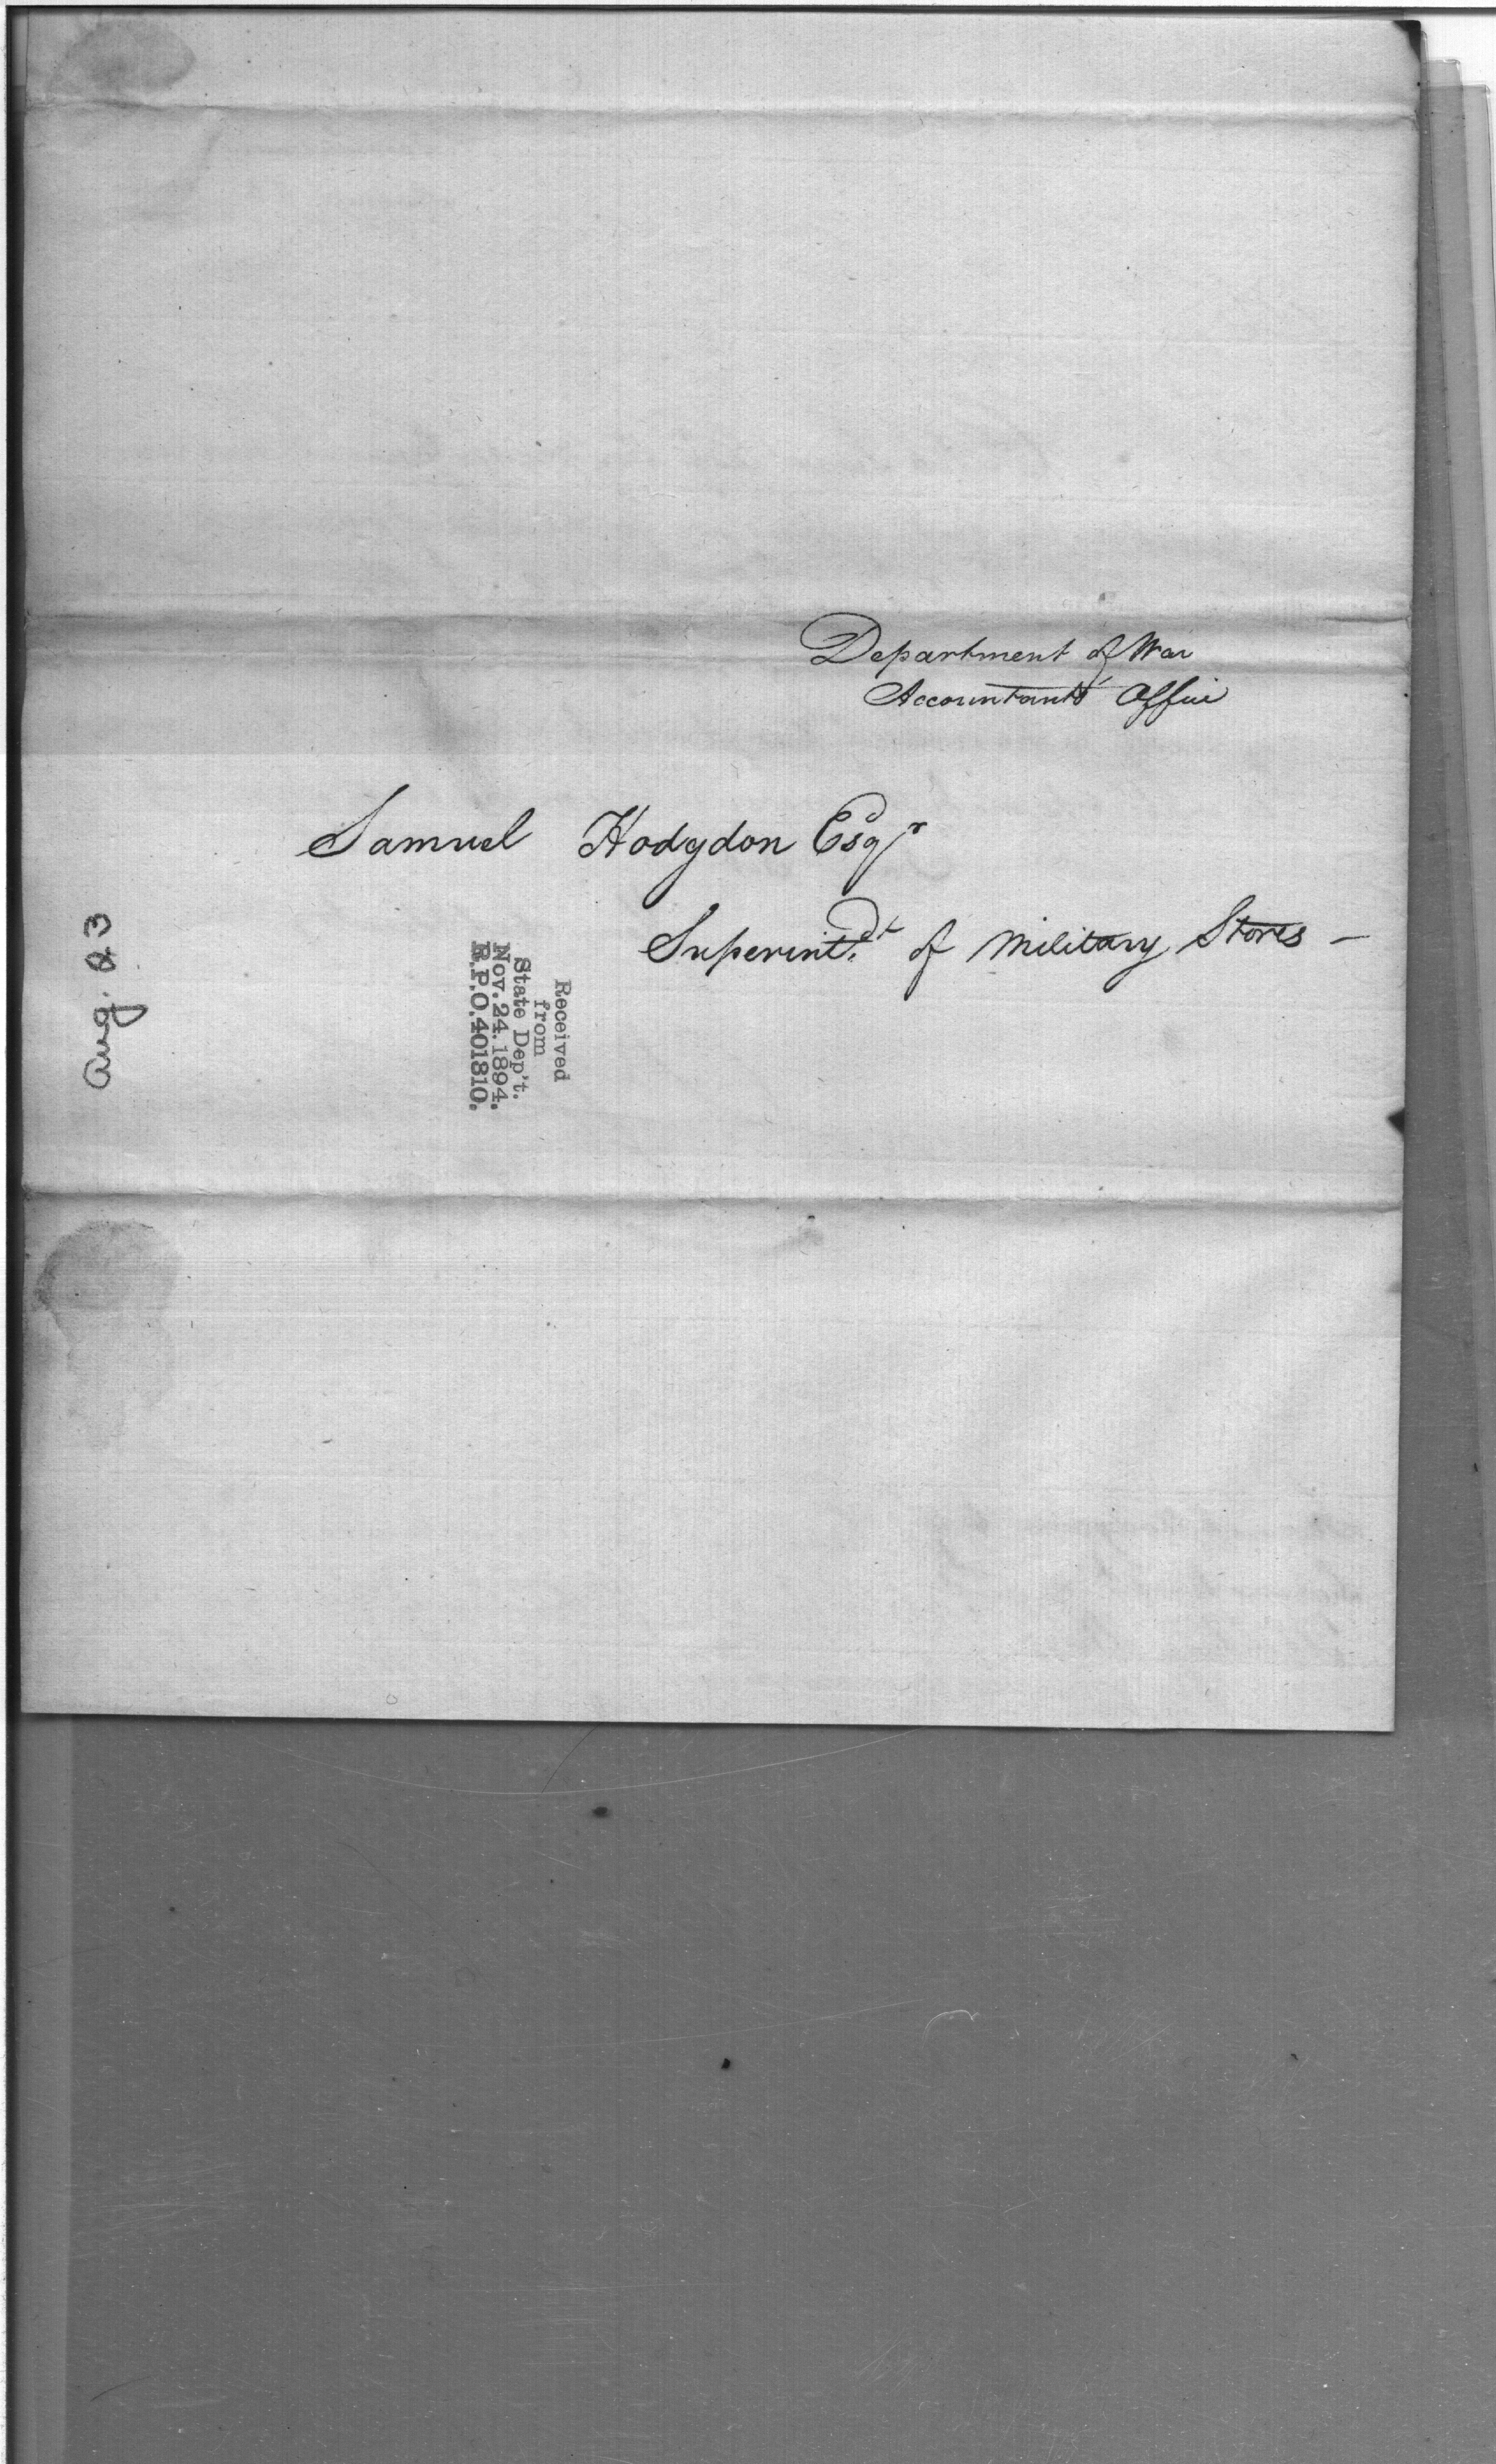 Department of War
Accountants Office
Samuel Hodgdon Esqr
Superintdt of Military Stores –
Aug. 23
Received
from
State Dep't.
Nov. 24. 1894.
R.P.O. 401810.